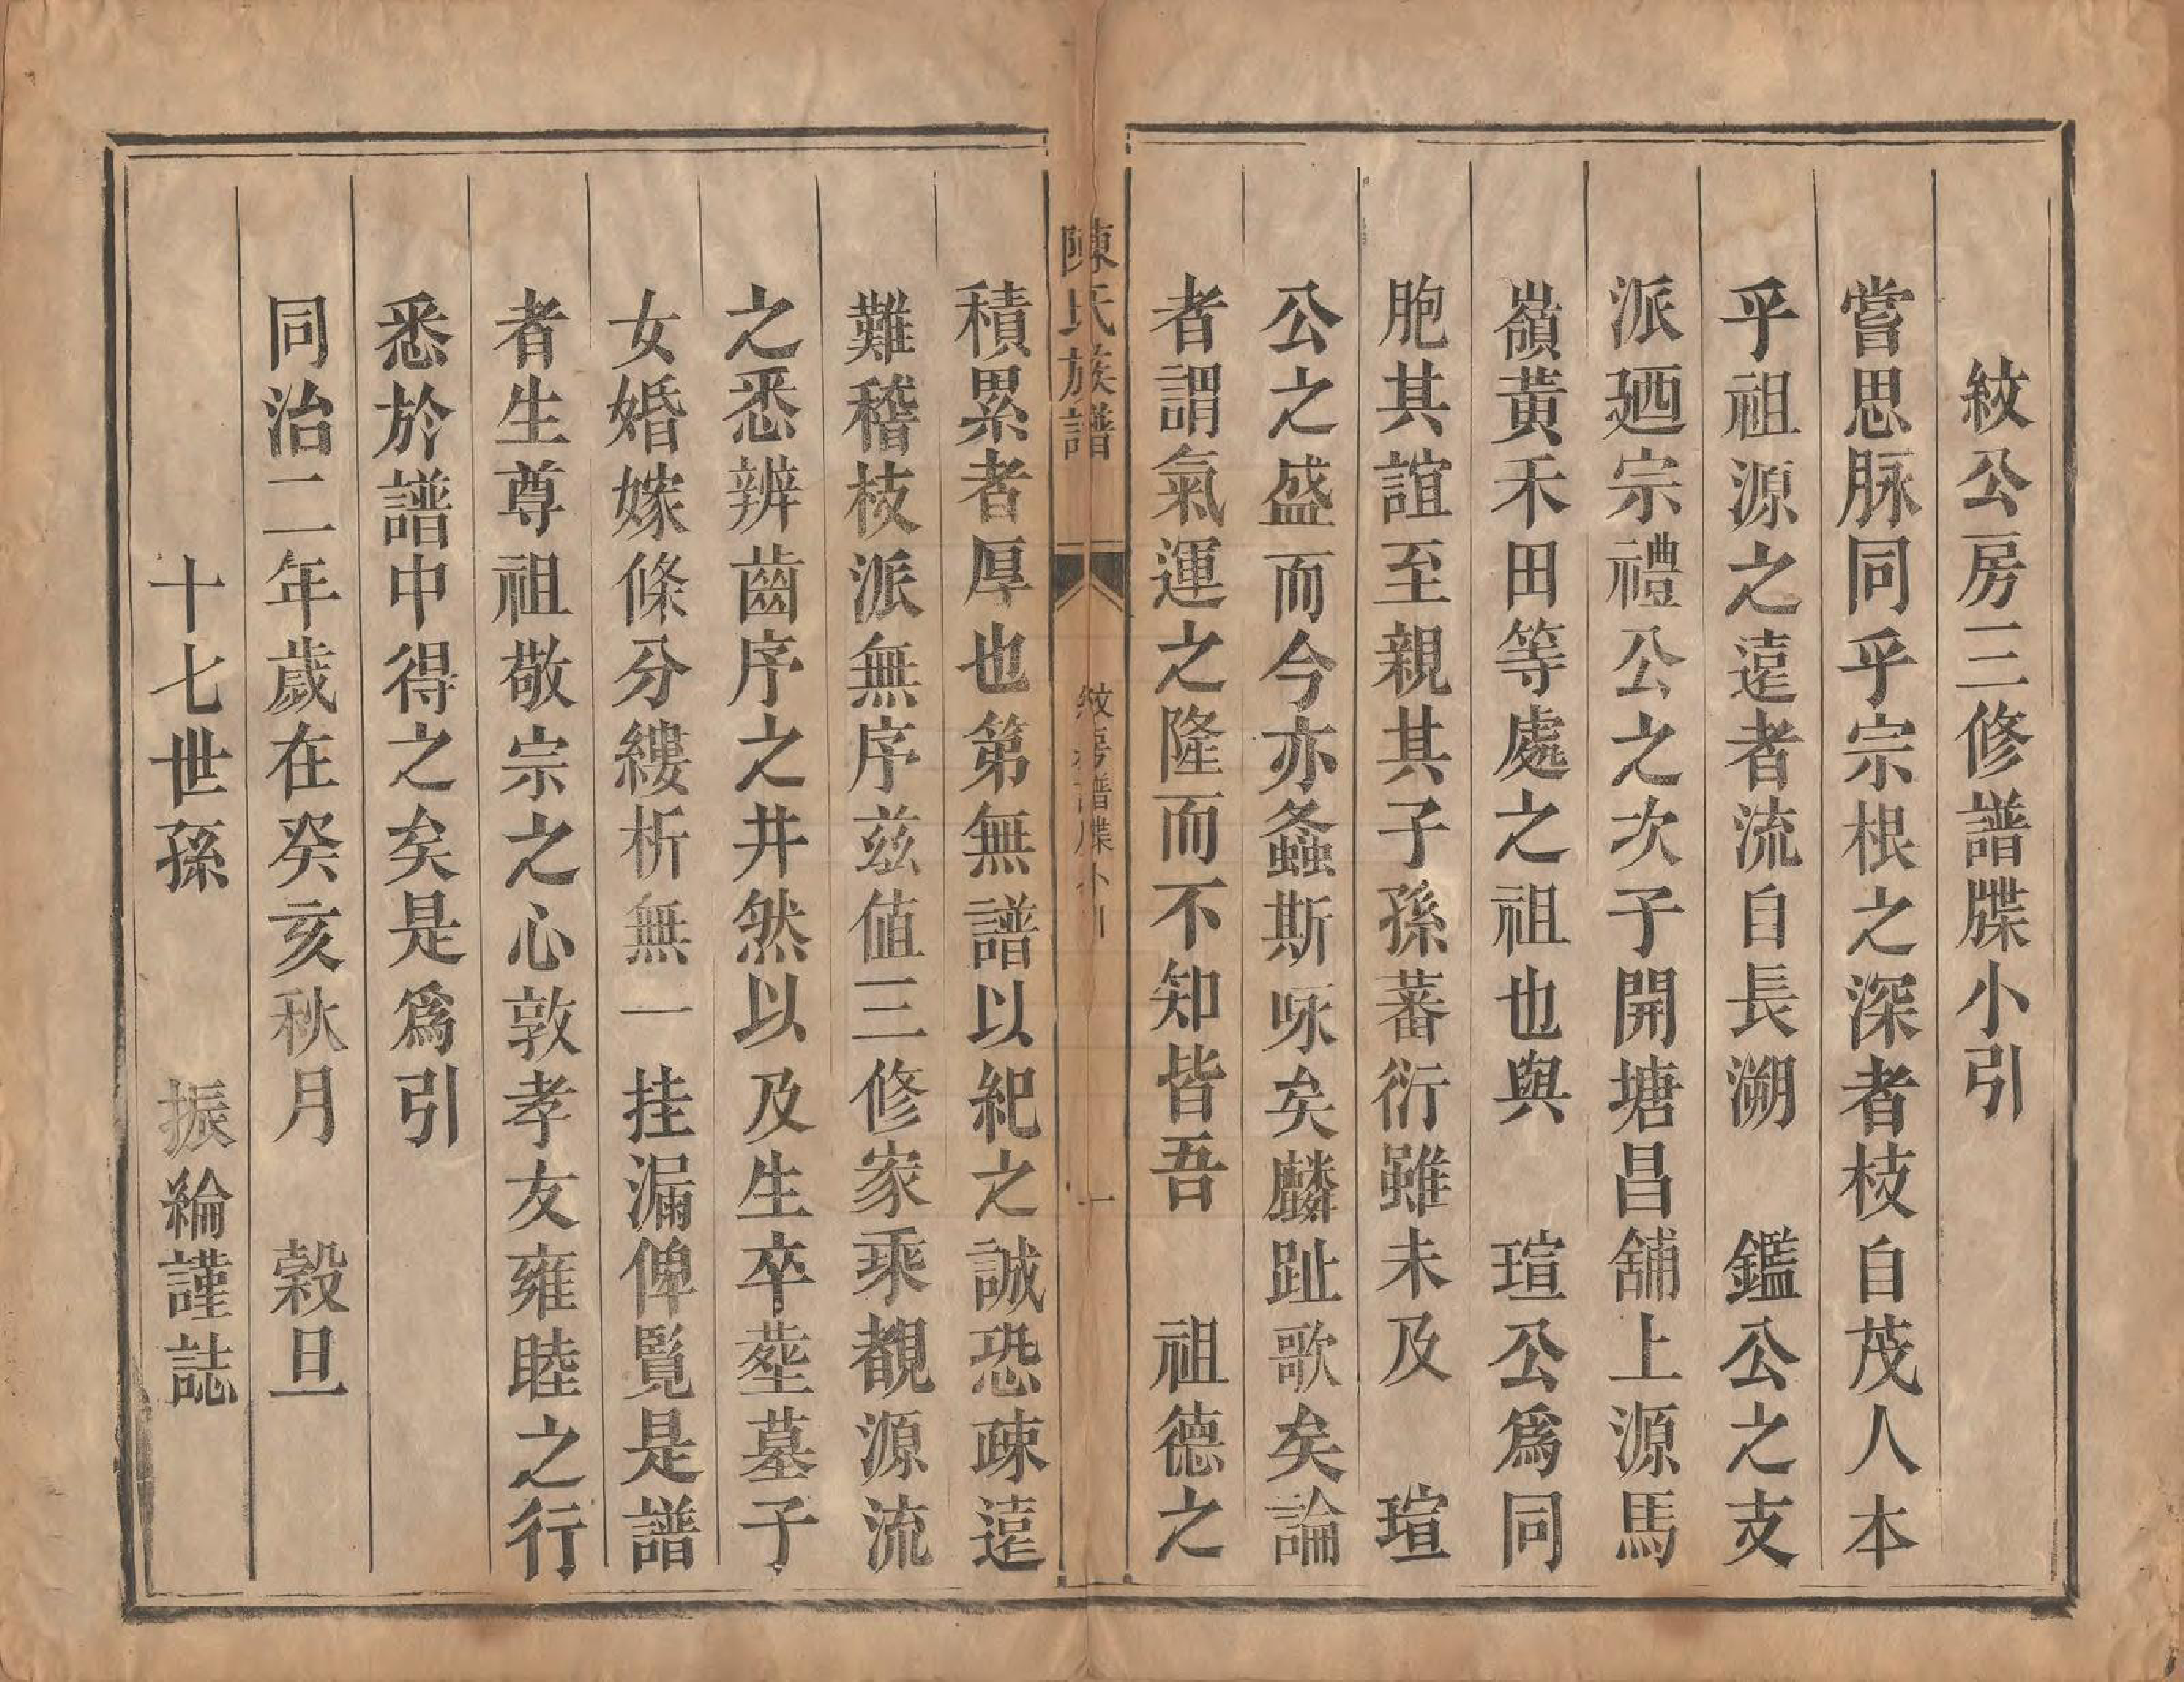 紋公房三修譜牒小引
嘗思脉同乎宗根之深者枝自茂人本
乎祖源之遠者流自長溯　鑑公之支
派廼宗禮公之次子開塘昌舖上源馬
嶺黃禾田等處之祖也與　瑄公爲同
胞其誼至親其子孫蕃衍雖未及　瑄
公之盛而今亦螽斯咏矣麟趾歌矣論
者謂氣運之隆而不知皆吾　祖德之
陳氏族譜　紋房譜牒小引　一
積累者厚也第無譜以紀之誠恐疎遠
難稽枝派無序兹值三修家乘覩源流
之悉辨齒序之井然以及生卒塟墓子
女婚嫁條分縷析無一挂漏俾覽是譜
者生尊祖敬宗之心敦孝友雍睦之行
悉於譜中得之矣是爲引
同治二年歲在癸亥秋月　穀旦
十七世孫　振綸謹誌